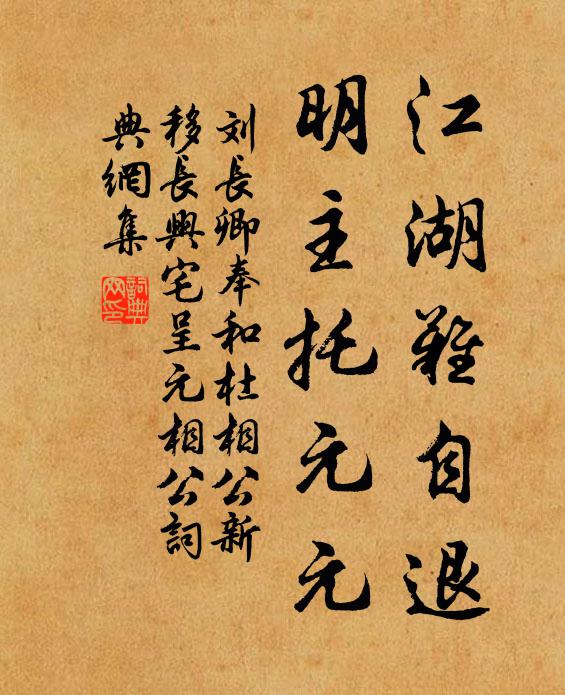 江湖難自退
明主托元元
刘長卿奉和杜相公新
移長興宅呈元相公詞
典網集
詞典
网印